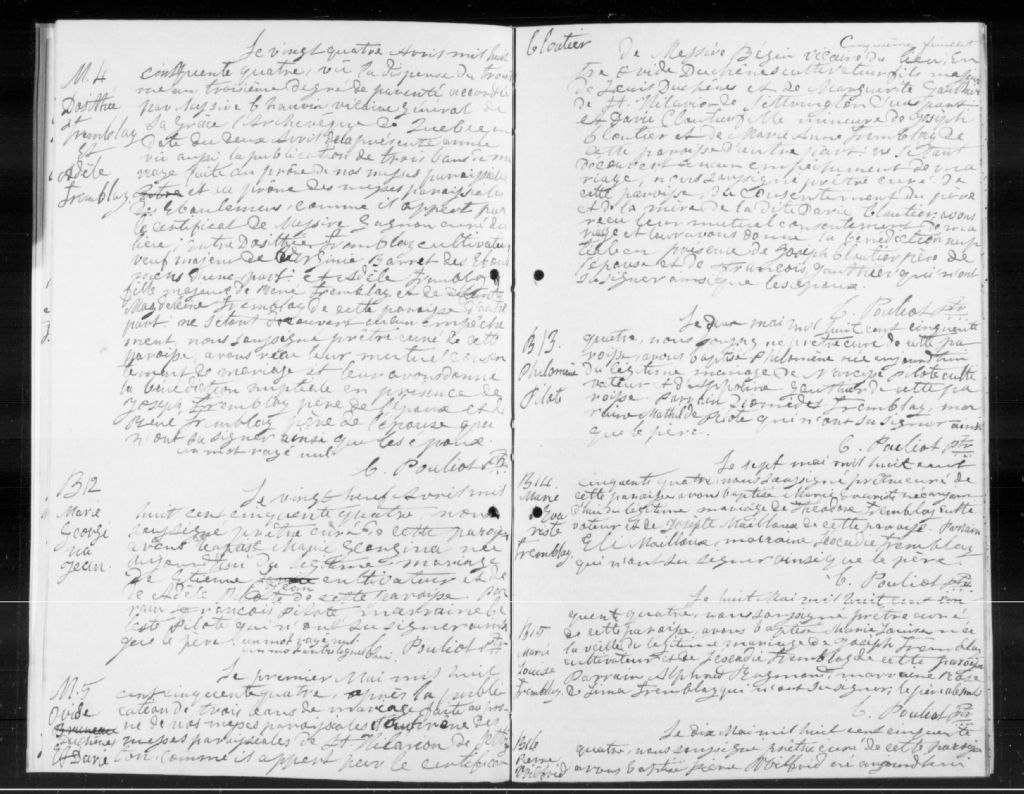 Le vingt quatre Avril mil huit
M. 4 cent cinquante quatre, vu la dispense du trois
au troisième degré de parenté accordée
Dosithée par Messire Chauvin vicaire Général de
Tremblay Sa Grâce l'Archevêque de Québec en
Et date du deux Avril de la présente année
vu aussi la publication de trois bans de ma
Adèle riage faite au prône de nos messes paroissiales
Tremblay et au prône des messes paroissiales
des Eboulemens, comme il appert par
le certificat de Messire Gagnon curé du
lieu, entre Dosithée Tremblay cultivateur
veuf majeur de Barret des Ebou
lemens d'une part; Et Adèle Tremblay
fille majeure de René Tremblay et de
Magdeleine Tremblay de cette paroisse d'autre
part; ne s'étant découvert aucun empêche
ment, nous soussigné prêtre curé de cette
paroisse, avons reçu leur mutuel consen
tement de mariage et leur avons donné
la bénédiction nuptiale en présence de
Joseph Tremblay père de l'époux et de
René Tremblay père de l'épouse qui
n'ont su signer ainsi que les époux.
un mot rayé nul.
C. Pouliot ptr
B12 Le vingt neuf Avril mil
Marie huit cent cinquante quatre, nous
Georgi soussigné prêtre curé de cette paroisse
na avons baptisé Marie Georgina née
Jean. aujourd'hui du légitime mariage
de Etienne Jean cultivateur et de
de Adèle Pilote de cette paroisse. Par
rain François Pilote, marraine
Pilote qui n'ont su signer ainsi
que le père. un mot rayé nul.
C. Pouliot ptr
Le premier Mai mil huit
M. 5 cent cinquante quatre, après la publi
Ovide cation de trois bans de mariage faite au prô
ne de nos messes paroissiales et au prône des
Duchênes messes paroissiales de St Hilarion de Settring
Et Davie ton, comme il appert par le certificat
Cloutier
Cinquième feuillet
de Messire Bégin vicaire du lieu, En
tre Ovide Duchênes cultivateur fils majeur
de Louis Duchênes et de Marguerite Gauthier
de St. Hilarion de Settrington d'une part
et Davie Cloutier fille mineure de Joseph
Cloutier et de Marie Anne Tremblay de
cette paroisse d'autre part; ne s'étant
découvert aucun empêchement de ma
riage, nous soussigné prêtre curé de
cette paroisse, du consentement du père
et de la mère de la dite Davie Cloutier, avons
reçu leur mutuel consentement de ma
riage et leur avons donné la bénédiction nup
tiale en présence de Joseph Cloutier père de
l'épouse et de François Gauthier qui n'ont
su signer ainsi que les époux.
C. Pouliot ptr
Le deux mai mil huit cent cinquante
B13. quatre, nous soussigné prêtre curé de cette pa
Philomène roisse, avons baptisé Philomène née aujourd'hui
Pilote du légitime mariage de Narcisse Pilote culti
vateur et d'Appoline Gauthier de cette pa
roisse. Parrain Diomèdes Tremblay, mar
raine Mathilde Pilote qui n'ont su signer ainsi
que le père.
C. Pouliot ptr
Le sept mai mil huit cent
B14. cinquante quatre, nous soussigné prêtre curé de
Marie cette paroisse avons baptisé Marie Evariste née aujour
Eva d'hui du légitime mariage de Théodore Tremblay culti
riste vateur et de Josephte Mailloux de cette paroisse. Parrain
Tremblay. Eli Mailloux, marraine Léocadie Tremblay
qui n'ont su signer ainsi que le père.
C. Pouliot ptr
Le huit Mai mil huit cent cin
quante quatre, nous soussigné prêtre curé
B15 de cette paroisse, avons baptisé Marie Louise née
Marie la veille du légitime mariage de Joseph Tremblay
Louise cultivateur et de Léocadie Tremblay de cette paroisse
Tremblay. Parrain Alphred Tremblay qui n'ont su signer, le père absent
C. Pouliot ptr
Le dix Mai mil huit cent cinquante
B16 quatre, nous soussigné prêtre curé de cette paroisse
Pierre
Wilfrid avons baptisé Pierre Wilfrid né aujourd'hui